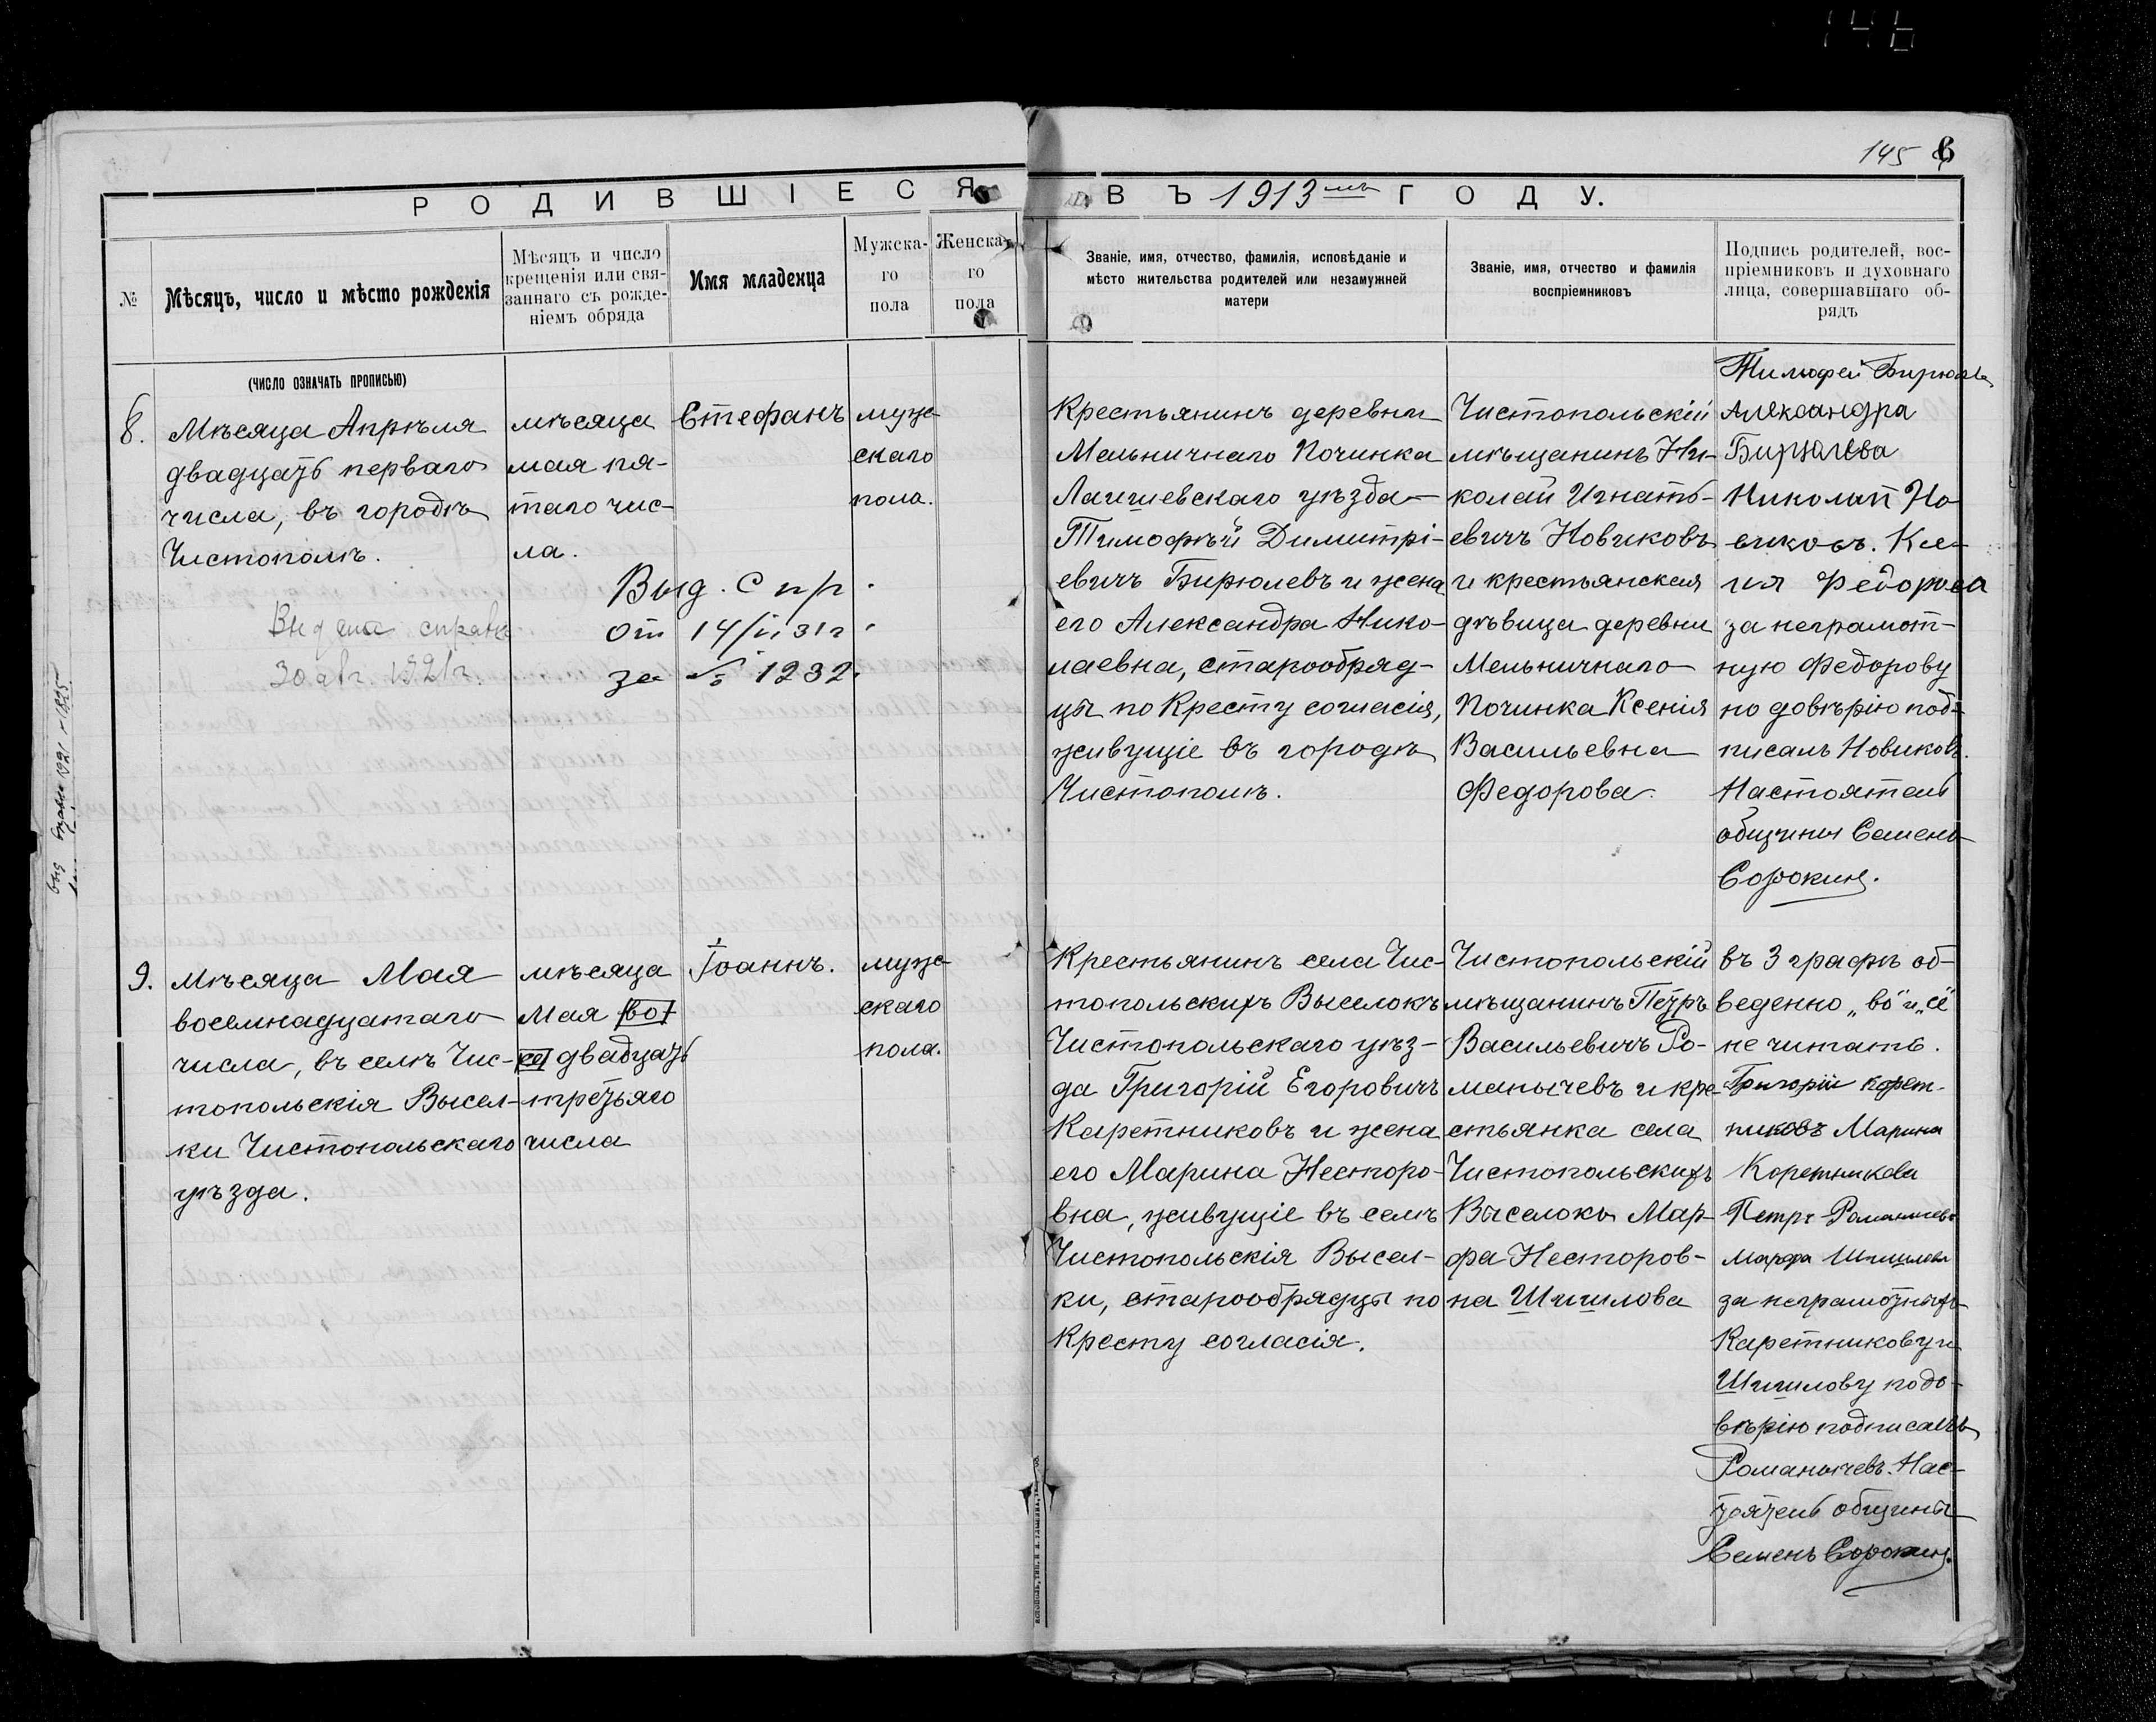 146
145 6
РОДИВШІЕСЯ ВЪ 1913мъ ГОДУ.
№
Мѣсяцъ, число и мѣсто рожденія
Мѣсяцъ и число
крещенія или свя-
заннаго съ рожде-
ніемъ обряда
Имя младенца
Мужска-
го
пола
Женска-
го
пола
Званіе, имя, отчество, фамилія, исповѣданіе и
мѣсто жительства родителей или незамужней
матери
Званіе, имя, отчество и фамилія
воспріемниковъ
Подпись родителей, вос-
пріемниковъ и духовнаго
лица, совершавшаго об-
рядъ
(ЧИСЛО ОЗНАЧАТЬ ПРОПИСЬЮ)
8.
Мѣсяца Апрѣля
двадцать перваго
числа, въ городѣ
Чистополѣ.
мѣсяца
мая пя-
таго чис-
ла.
Стефанъ
муже-
скаго
пола.
Выд. Спр.
от 14/ii 31г.
за № 1232.
справк
30 авг. 1921г.
Крестьянинъ деревни
Мельничнаго Починка
Лаишевскаго уѣзда
Тимофѣй Димитрі-
евичъ Бирюлевъ и жена
его Александра Нико-
лаевна, старообряд-
цы по Кресту согласія,
живущіе въ городѣ
Чистополѣ.
Чистопольскій
мѣщанинъ Ни-
колай Игнать-
евичъ Новиковъ
и крестьянская
дѣвица деревни
Мельничнаго
Починка Ксенія
Васильевна
Федорова.
Тимофей Бирюлев
Александра
Бирюлева
Николай Но
виковъ. Ксе-
нія Федорова
за неграмот-
ную Федорову
по довѣрію под-
писалъ Новиковъ.
Настоятель
общины Семенъ
Сорокинъ.
9.
Мѣсяца Мая
восемнадцатаго
числа, въ селѣ Чис-
топольскія Высел-
ки Чистопольскаго
уѣзда.
мѣсяца
Мая [во]
[се] двадцать
третьяго
числа
Іоаннъ.
муже-
скаго
пола.
Крестьянинъ села Чис-
топольскихъ Выселокъ
Чистопольскаго уѣз-
да Григорій Егоровичъ
Каретниковъ и жена
его Марина Несторо-
вна, живущіе въ селѣ
Чистопольскія Высел-
ки, старообрядцы по
Кресту согласія.
Чистопольскій
мѣщанинъ Петръ
Васильевичъ Ро-
манычевъ и кре-
стьянка села
Чистопольскихъ
Выселокъ Мар-
фа Несторов-
на Шишлова
въ 3 графѣ об-
веденно „во" и „се"
не читать.
Григорій Карет-
никовъ Марина
Коретникова
Петръ Романычевъ
Марфа Шишлова
за неграмотныхъ
Каретникову и
Шишлову по до-
вѣрію подписалъ
Романычевъ. Нас-
тоятель общины
Семенъ Сорокинъ.